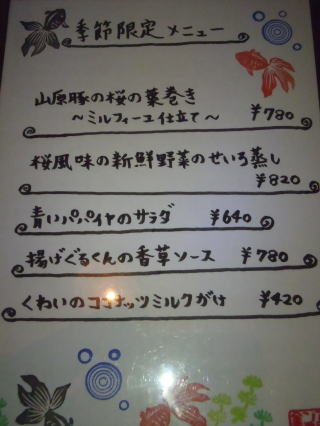 季節限定メニュー
山原豚の桜の葉巻き
～ミルフィーユ仕立て～ ¥780
桜風味の新鮮野菜のせいろ蒸し
¥820
青いパパイヤのサラダ ¥640
揚げぐるくんの香草ソース ¥780
くわいのココナッツミルクがけ ¥420